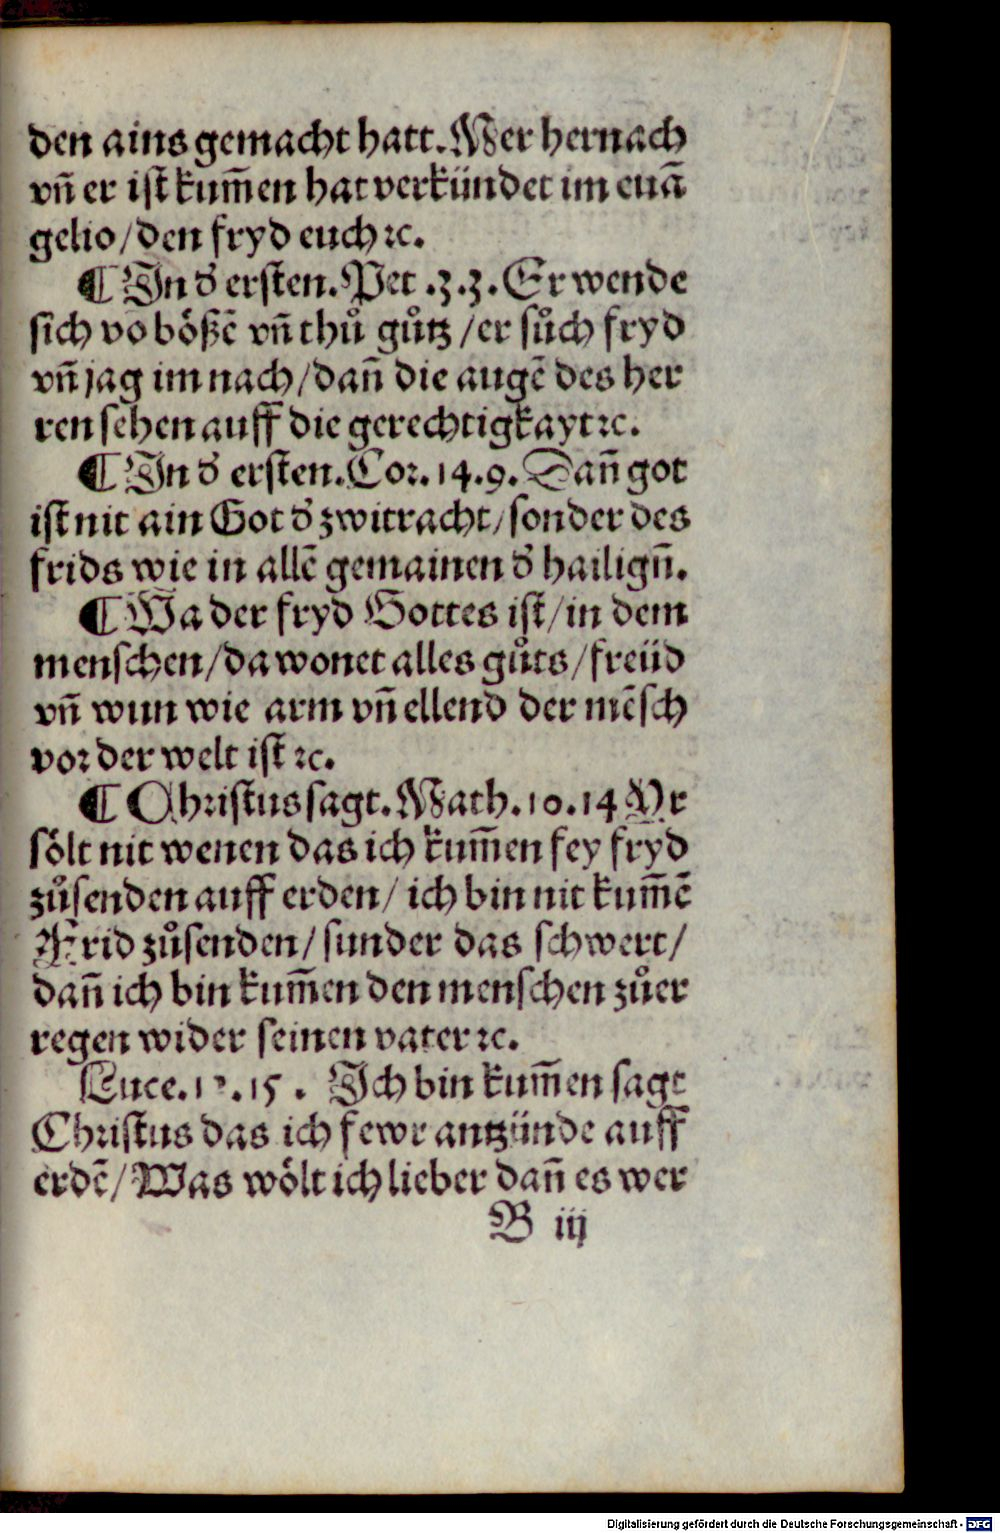 den ains gemacht hatt. Mer hernach
vn̄ er ist kum̄en hat verkündet im euā
gelio/den fryd euch ꝛc.
¶ In d̕ ersten. Pet .3.3. Er wende
sich vo bößē vn̄ thuͦ guͦtz /er suͦch fryd
vn̄ jag im nach/dan̄ die augē des her
ren sehen auff die gerechtigkayt ꝛc.
¶ In d̕ ersten. Cor. 14.9. Dan̄ got
ist nit ain Got d̕ zwitracht/sonder des
frids wie in allē gemainen d̕ hailign̄.
¶ Wa der fryd Gottes ist/in dem
menschen/da wonet alles guͦts/freüd
vn̄ wun wie arm vn̄ ellend der mēsch
vor der welt ist ꝛc.
¶ Christus sagt. Math. 10.14 Yr
sölt nit wenen das ich kum̄en sey fryd
zuͦsenden auff erden/ ich bin nit kum̄ē
Frid zuͦsenden/ sunder das schwert/
dan̄ ich bin kum̄en den menschen zuͦer
regen wider seinen vater ꝛc.
Luce. .15 . Ich bin kum̄en sagt
Christus das ich fewr antzünde auff
erdē/ Was wölt ich lieber dan̄ es wer
B iij
Digitalisierung gefördert durch die Deutsche Forschungsgemeinschaft - DFG